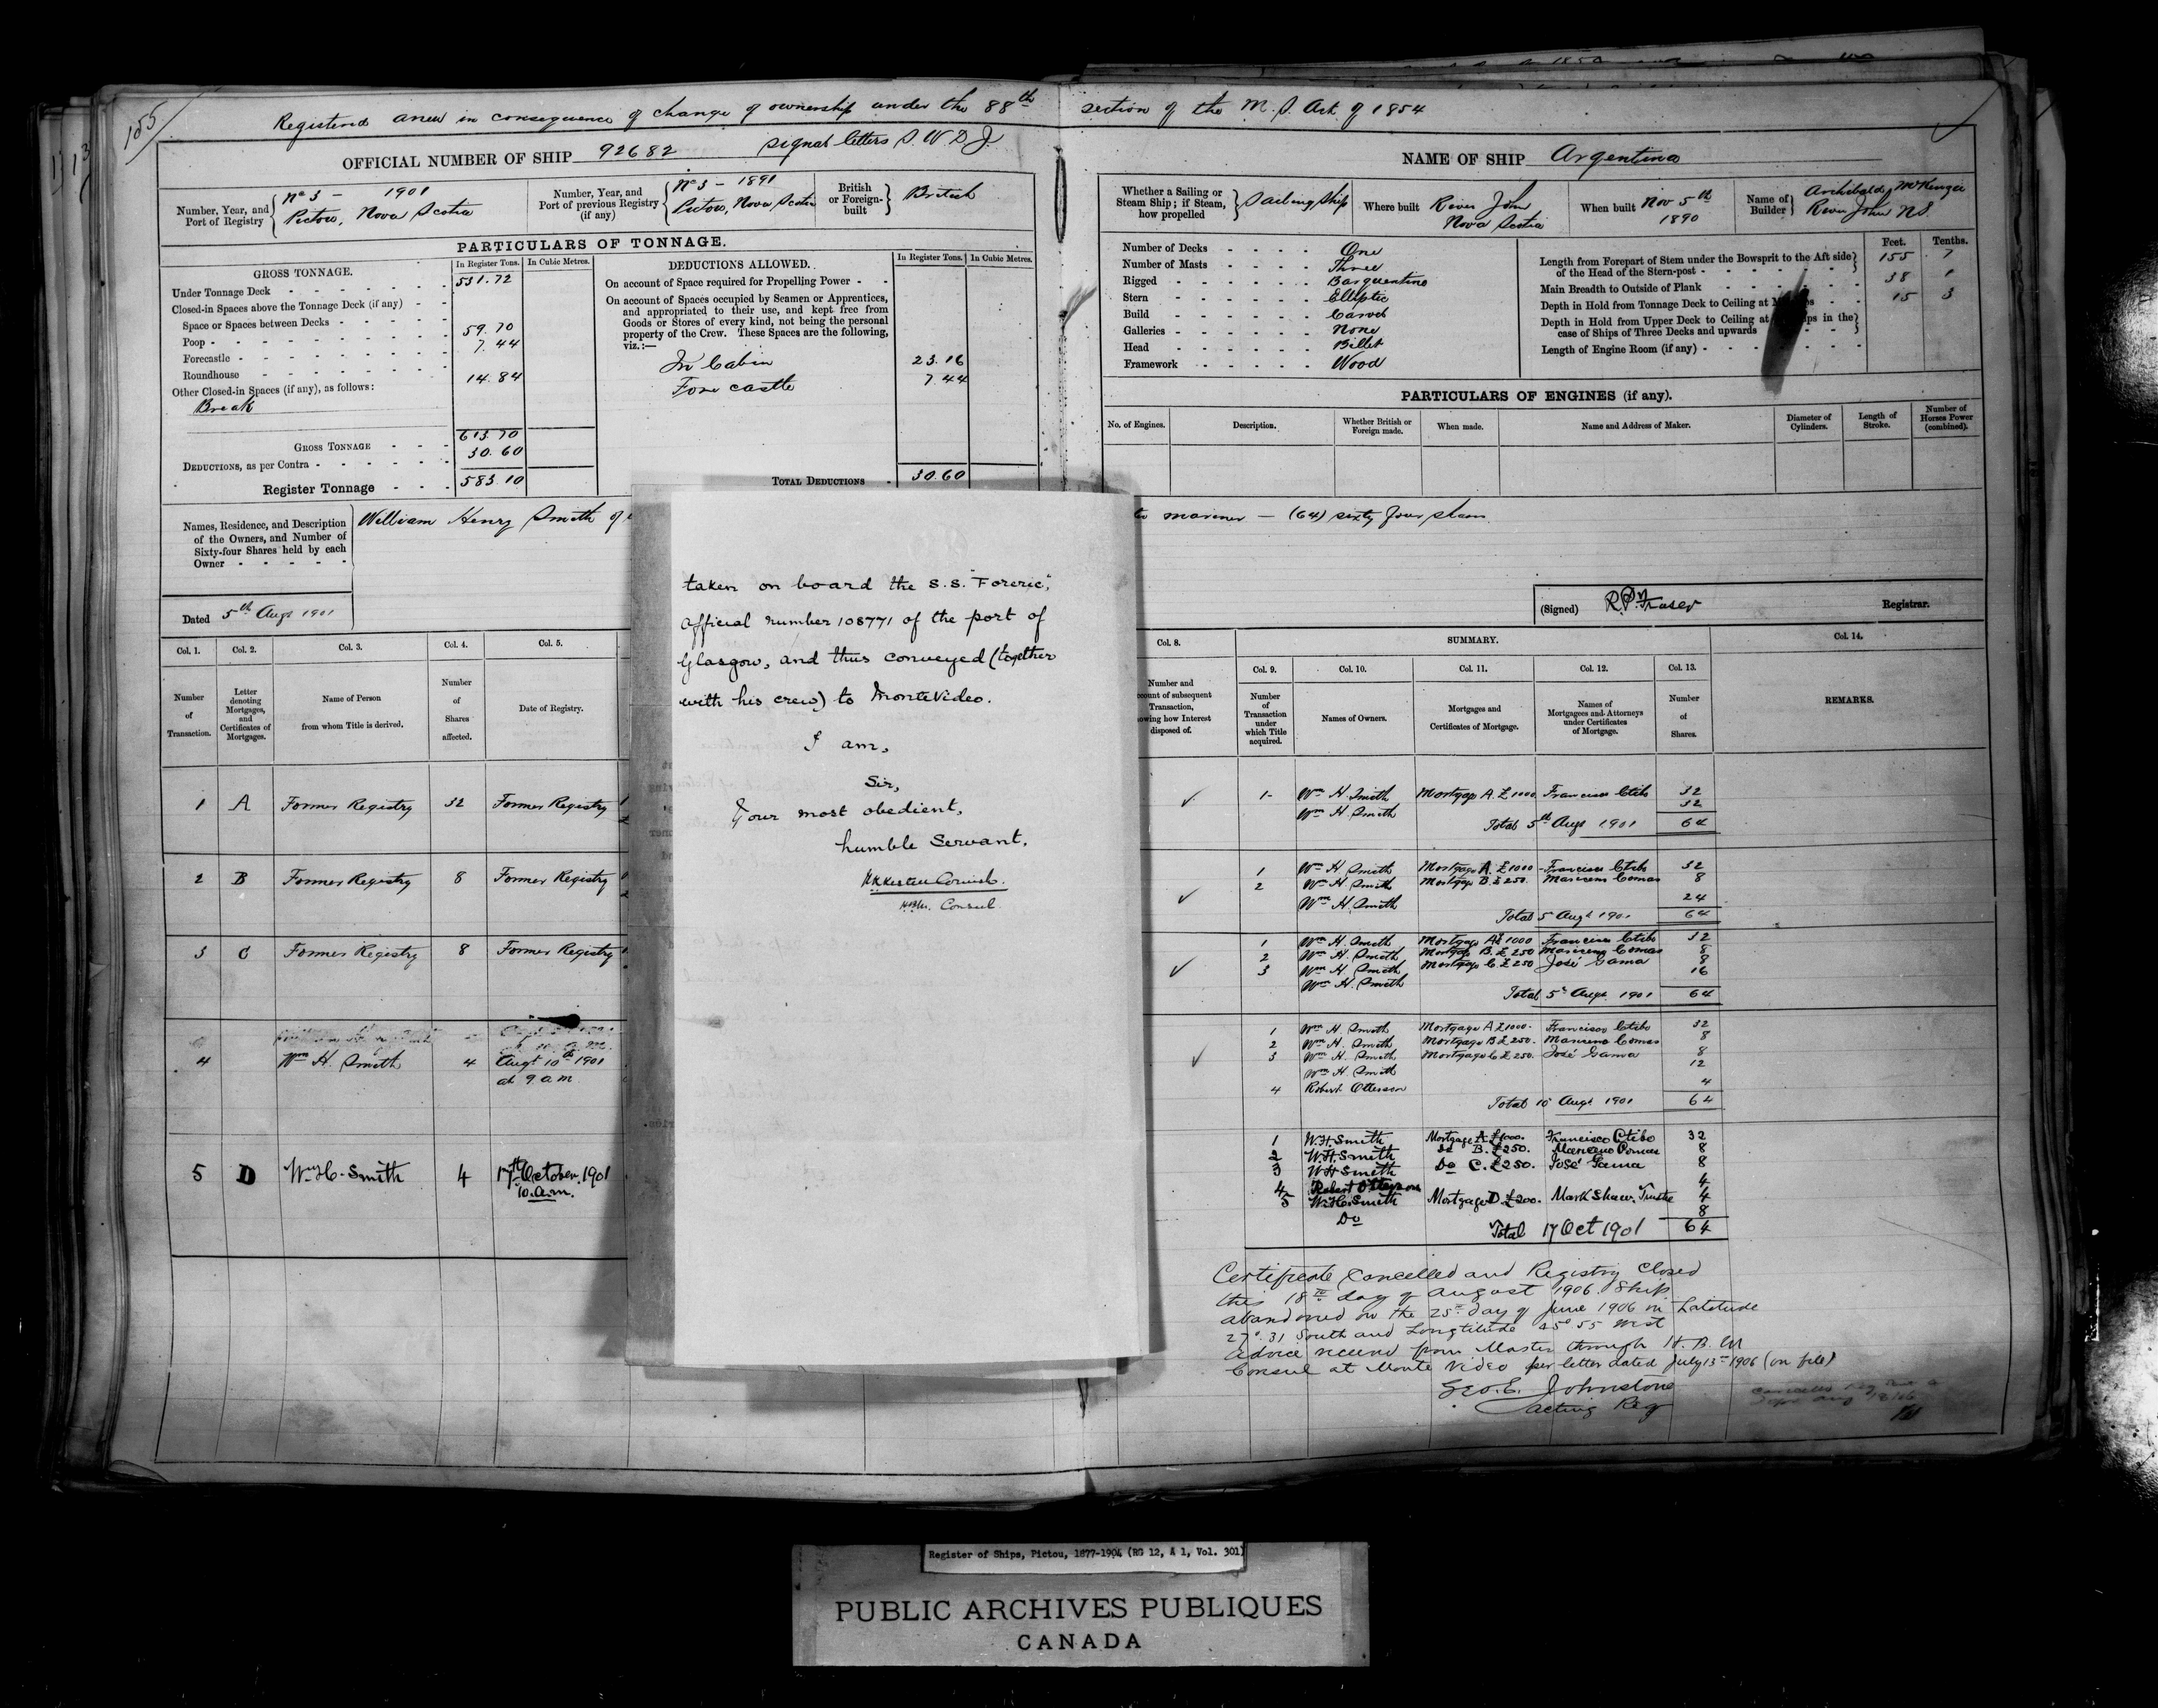 155
Registered anew in consequence of change of ownership under the 88th section of the M. S. Act of 1854
OFFICIAL NUMBER OF SHIP 92682 signal letters S. W. D. J.
Number, Year, and Port of Registry No 3 - 1901 Pictou, Nova Scotia
Number, Year, and Port of previous Registry (if any) No 3 - 1891 Pictou, Nova Scotia
British or Foreign-built British
PARTICULARS OF TONNAGE.
GROSS TONNAGE. In Register Tons. In Cubic Metres.
Under Tonnage Deck 531.72
Closed-in Spaces above the Tonnage Deck (if any)
Space or Spaces between Decks
Poop 59.70
Forecastle 7.44
Roundhouse
Other Closed-in Spaces (if any), as follows: 14.84
Break
GROSS TONNAGE 613.70
DEDUCTIONS, as per Contra 30.60
Register Tonnage 583.10
DEDUCTIONS ALLOWED. In Register Tons. In Cubic Metres.
On account of Space required for Propelling Power
On account of Spaces occupied by Seamen or Apprentices,
and appropriated to their use, and kept free from
Goods or Stores of every kind, not being the personal
property of the Crew. These Spaces are the following,
viz.:—
In Cabin 23.16
Fore castle 7.44
TOTAL DEDUCTIONS 30.60
Names, Residence, and Description
of the Owners, and Number of
Sixty-four Shares held by each
Owner
William Henry Smith of
Dated 5th Augt 1901
Col. 1. Col. 2. Col. 3. Col. 4. Col. 5.
Number of Transaction.
Letter denoting Mortgages, and Certificates of Mortgages.
Name of Person from whom Title is derived.
Number of Shares affected.
Date of Registry.
1 A Former Registry 32 Former Registry
2 B Former Registry 8 Former Registry
3 C Former Registry 8 Former Registry
4 Wm H. Smith 4 Augt 10th 1901
at 9 a.m.
5 D Wm H. Smith 4 17th October. 1901
10. a.m.
taken on board the S.S. "Foreric",
official number 108771 of the port of
Glasgow, and thus conveyed (together
with his crew) to Monte Video.
I am,
Sir,
Your most obedient,
humble Servant,
H.B.M. Consul
NAME OF SHIP Argentina
Whether a Sailing or Steam Ship; if Steam, how propelled Sailing Ship
Where built River John Nova Scotia
When built Nov 5th 1890
Name of Builder Archibald McKenzie River John N.S.
Number of Decks One
Number of Masts Three
Rigged Barquentine
Stern Elliptic
Build Carvel
Galleries None
Head Billet
Framework Wood
Feet. Tenths.
Length from Forepart of Stem under the Bowsprit to the Aft side
of the Head of the Stern-post 155 7
Main Breadth to Outside of Plank 38 1
Depth in Hold from Tonnage Deck to Ceiling at 15 3
Depth in Hold from Upper Deck to Ceiling at in the
case of Ships of Three Decks and upwards
Length of Engine Room (if any)
PARTICULARS OF ENGINES (if any).
No. of Engines. Description. Whether British or Foreign made. When made. Name and Address of Maker. Diameter of Cylinders. Length of Stroke. Number of Horses Power (combined).
mariner — (64) sixty four shares
(Signed) Fraser Registrar.
Col. 8. SUMMARY. Col. 14.
Col. 9. Col. 10. Col. 11. Col. 12. Col. 13.
Number and
of subsequent
Transaction,
how Interest
disposed of.
Number of Transaction under which Title acquired.
Names of Owners.
Mortgages and Certificates of Mortgage.
Names of Mortgagees and Attorneys under Certificates of Mortgage.
Number of Shares.
REMARKS.
1 Wm H. Smith Mortgage A. £1000 Francisco Ctibo 32
Wm H. Smith 32
Total 5th Augt 1901 64
1 Wm H. Smith Mortgage A. £1000 Francisco Ctibo 32
2 Wm H. Smith Mortgage B. £250. Mariano Comas 8
Wm H. Smith 24
Total 5 Augt 1901 64
1 Wm H. Smith Mortgage A £1000 Francisco Ctibo 32
2 Wm H. Smith Mortgage B. £250 Mariano Comas 8
3 Wm H. Smith Mortgage C. £250 José Gama 8
Wm H. Smith 16
Total 5th Augt 1901 64
1 Wm H. Smith Mortgage A £1000. Francisco Ctibo 32
2 Wm H. Smith Mortgage B £250. Mariano Comas 8
3 Wm H. Smith Mortgage C £250. José Gama 8
Wm H. Smith 12
4 Robert Otterson 4
Total 10 Augt 1901 64
1 W.H. Smith Mortgage A £1000. Francisco Ctibo 32
2 W.H. Smith do B. £250. Mariano Comas 8
3 W.H. Smith Do C. £250. José Gama 8
4 Robert Otterson 4
5 W.H. Smith Mortgage D £200. Mark Shaw. Trustee 4
Do 8
Total 17 Oct 1901 64
Certificate Cancelled and Registry Closed
this 18th day of August 1906. Ship
abandoned on the 25th day of June 1906 in Latitude
27°.31 South and Longtitude 45° 55 West
Advice received from Master through H. B. M
Consul at Monte Video per letter dated July 13th 1906 (on file)
Geo. E. Johnstone
Acting Reg
Register of Ships, Pictou, 1877-1904 (RG 12, A 1, Vol. 301)
PUBLIC ARCHIVES PUBLIQUES
CANADA